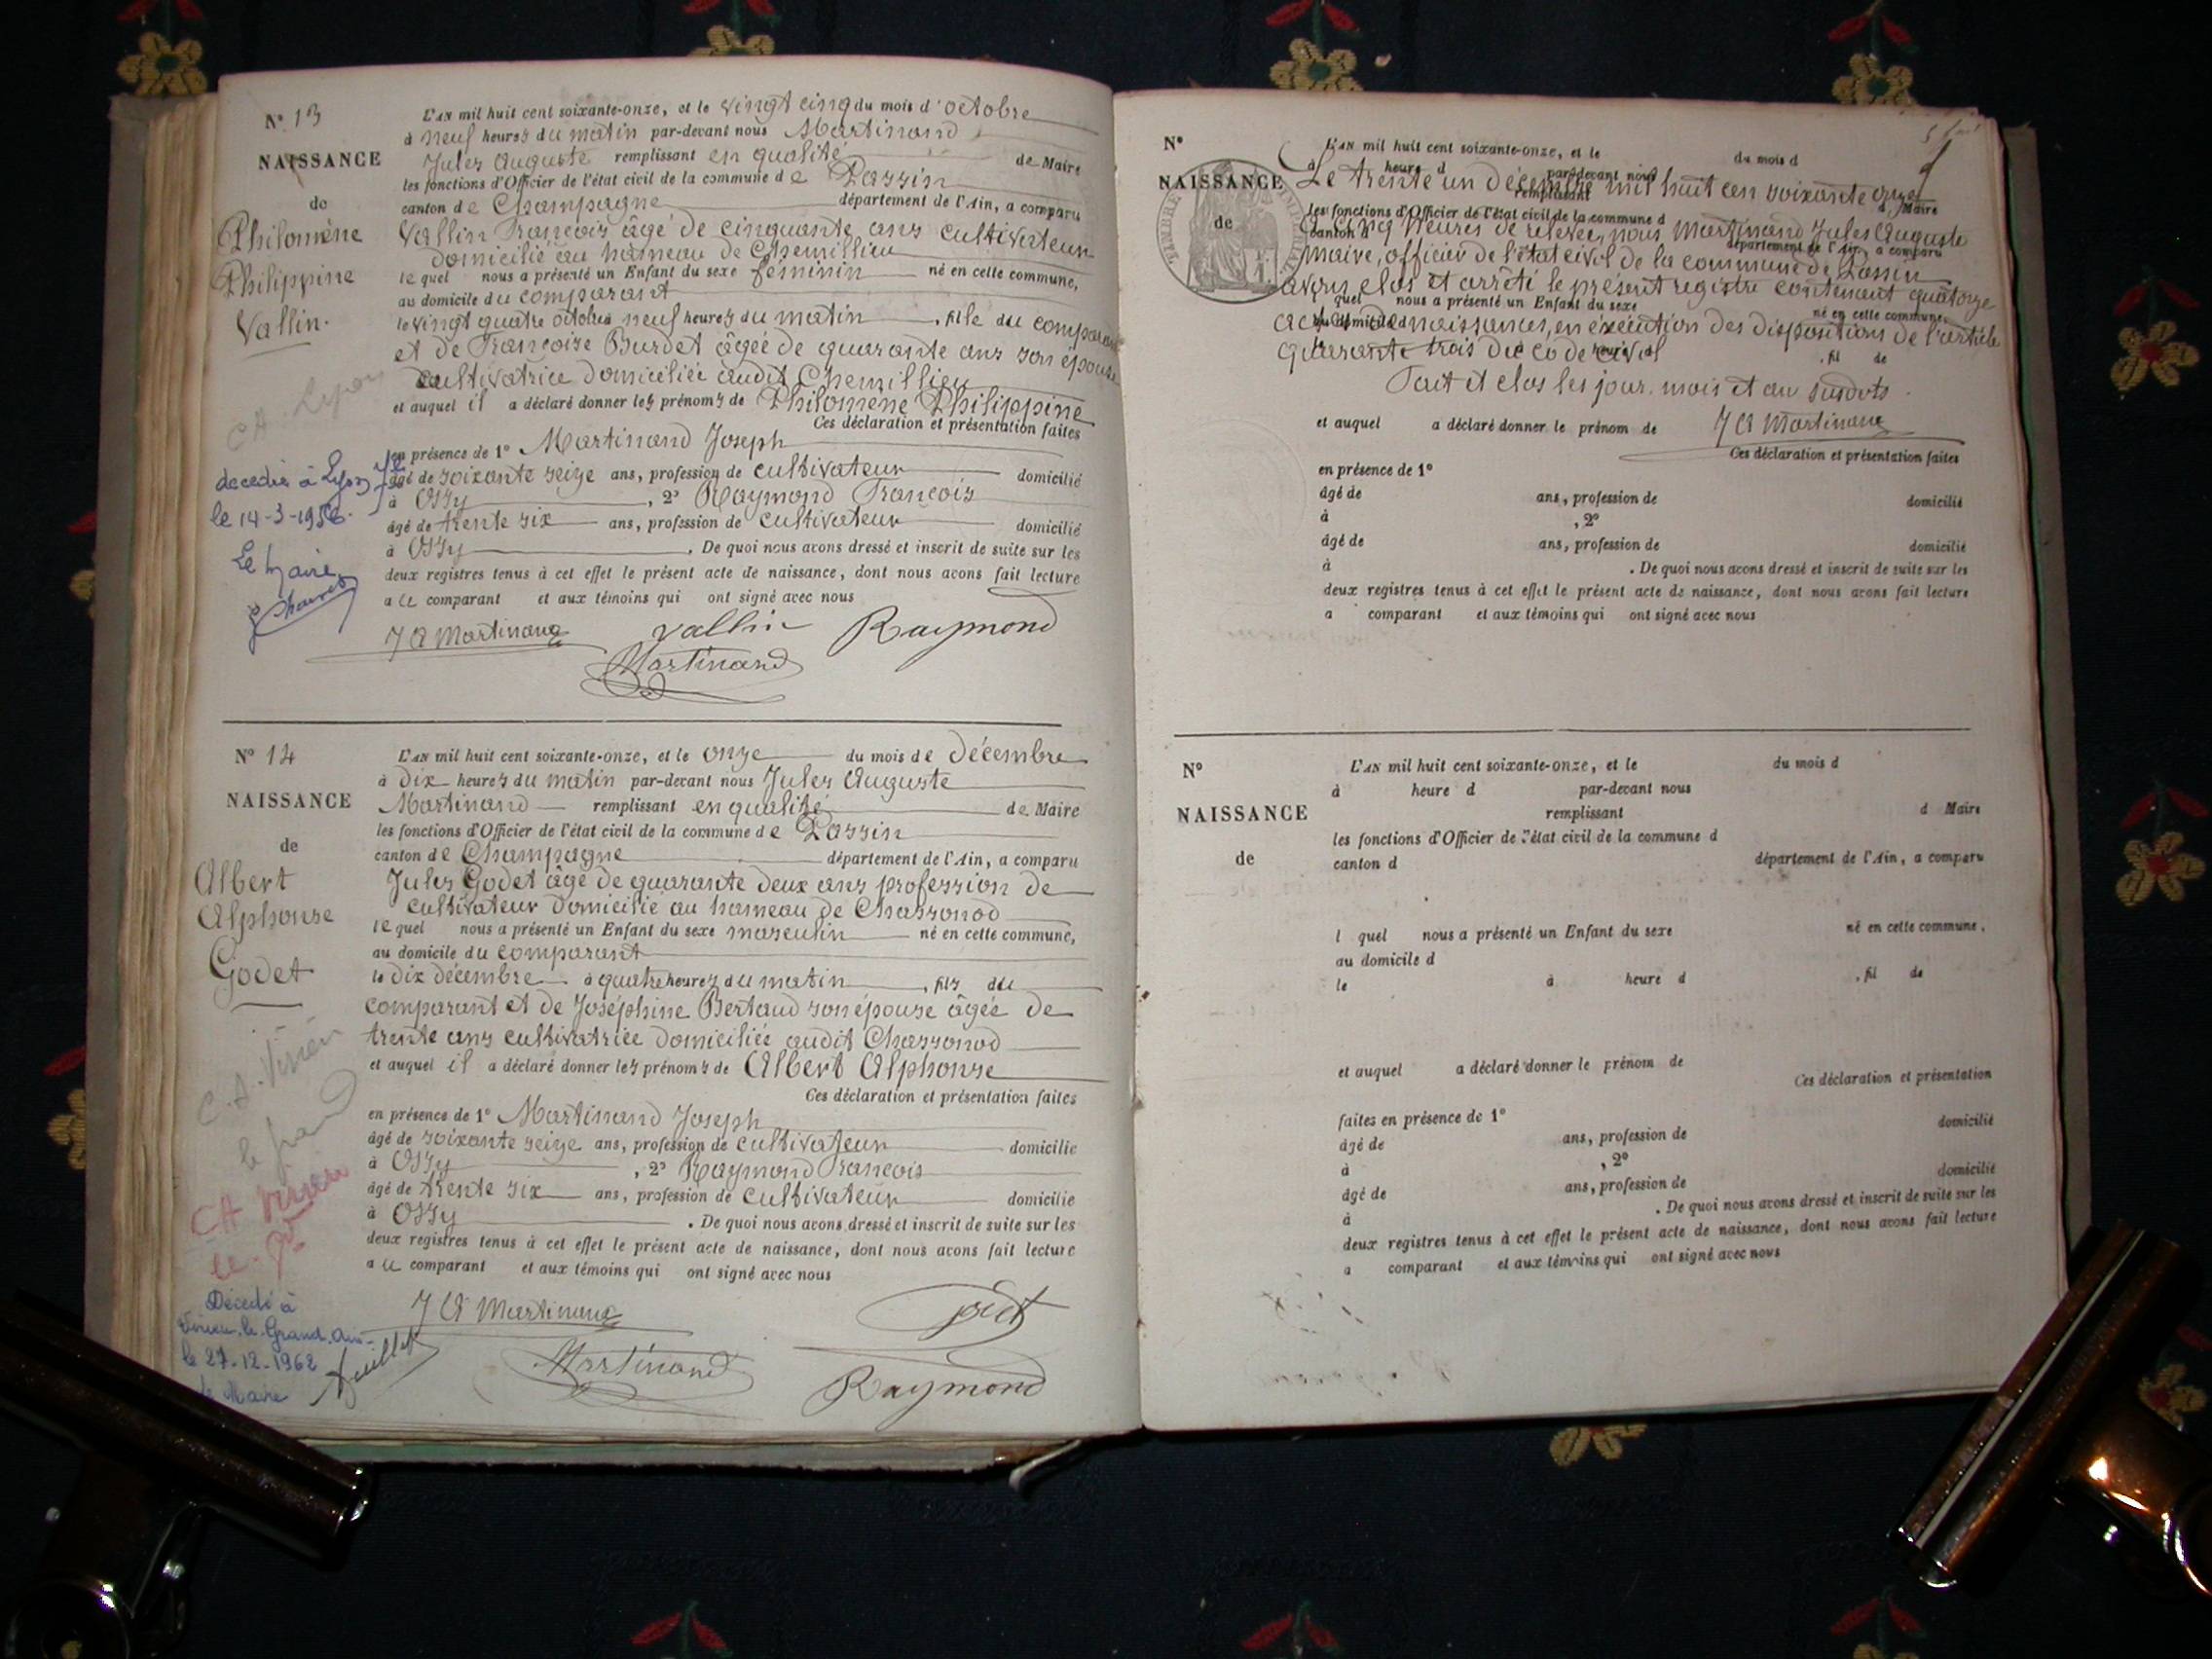 N° 13
NAISSANCE
de
Philomène
Philippine
Vallin.
CA. Lyon
décédée à Lyon 7e
le 14-3-1956.
Le Maire,
L'AN mil huit cent soixante-onze, et le vingt cinq du mois d'octobre
à neuf heures du matin par-devant nous Martinand
Jules Auguste remplissant en qualité de Maire
les fonctions d'Officier de l'état civil de la commune de Passin
canton de Champagne département de l'Ain, a comparu
Vallin François âgé de cinquante ans cultivateur
domicilié au hameau de Chemillieu
lequel nous a présenté un Enfant du sexe féminin né en cette commune,
au domicile du comparant
le vingt quatre octobre neuf heures du matin , fille du comparant
et de Françoise Burdet âgée de quarante ans son épouse
cultivatrice domiciliée audit Chemillieu
et auquel il a déclaré donner les prénoms de Philomène Philippine
Ces déclaration et présentation faites
en présence de 1° Martinand Joseph
âgé de soixante seize ans, profession de cultivateur domicilié
à Ossy , 2° Raymond François
âgé de trente six ans, profession de cultivateur domicilié
à Ossy . De quoi nous avons dressé et inscrit de suite sur les
deux registres tenus à cet effet le présent acte de naissance, dont nous avons fait lecture
a u comparant et aux témoins qui ont signé avec nous
J A Martinand Vallin Raymond
Martinand
N° 14
NAISSANCE
de
Albert
Alphonse
Godet
C.A. Virieu
le grand
CA Virieu
le-Gd
Décédé à
Virieu-le-Grand. Ain-
le 27-12-1962
le Maire
L'AN mil huit cent soixante-onze, et le onze du mois de décembre
à dix heures du matin par-devant nous Jules Auguste
Martinand remplissant en qualité de Maire
les fonctions d'Officier de l'état civil de la commune de Passin
canton de Champagne département de l'Ain, a comparu
Jules Godet âgé de quarante deux ans profession de
cultivateur domicilié au hameau de Chassonod
lequel nous a présenté un Enfant du sexe masculin né en cette commune,
au domicile du comparant
le dix décembre à quatre heures du matin , fils du
comparant et de Joséphine Bertaud son épouse âgée de
trente ans cultivatrice domiciliée audit Chassonod
et auquel il a déclaré donner les prénoms de Albert Alphonse
Ces déclaration et présentation faites
en présence de 1° Martinand Joseph
âgé de soixante seize ans, profession de cultivateur domicilié
à Ossy , 2° Raymond François
âgé de trente six ans, profession de cultivateur domicilié
à Ossy . De quoi nous avons dressé et inscrit de suite sur les
deux registres tenus à cet effet le présent acte de naissance, dont nous avons fait lecture
a u comparant et aux témoins qui ont signé avec nous
J A Martinand
Martinand
Raymond
N°
NAISSANCE
de
TIMBRE IMPERIAL
L'AN mil huit cent soixante-onze, et le du mois d
à heure d par-devant nous
Le trente un décembre mil huit cen soixante onze
remplissant d Maire
les fonctions d'Officier de l'état civil de la commune d
canton d
à cinq heures de relevée, nous Martinand Jules Auguste
département de l'Ain, a comparu
maire, officier de l'état civil de la commune de Passin
avons clos et arrêté le présent registre contenant quatorze
l quel nous a présenté un Enfant du sexe né en cette commune,
au domicile d
actes de naissances, en exécution des dispositions de l'article
quarante trois du code civil
le à heure d , fil de
Fait et clos les jour, mois et an susdits.
et auquel a déclaré donner le prénom de J A Martinand
Ces déclaration et présentation faites
en présence de 1°
âgé de ans, profession de domicilié
à , 2°
âgé de ans, profession de domicilié
à . De quoi nous avons dressé et inscrit de suite sur les
deux registres tenus à cet effet le présent acte de naissance, dont nous avons fait lecture
a comparant et aux témoins qui ont signé avec nous
N°
NAISSANCE
de
L'AN mil huit cent soixante-onze, et le du mois d
à heure d par-devant nous
remplissant d Maire
les fonctions d'Officier de l'état civil de la commune d
canton d département de l'Ain, a comparu
l quel nous a présenté un Enfant du sexe né en cette commune,
au domicile d
le à heure d , fil de
et auquel a déclaré donner le prénom de
Ces déclaration et présentation
faites en présence de 1° domicilié
âgé de ans, profession de
à , 2° domicilié
âgé de ans, profession de
à . De quoi nous avons dressé et inscrit de suite sur les
deux registres tenus à cet effet le présent acte de naissance, dont nous avons fait lecture
a comparant et aux témoins qui ont signé avec nous